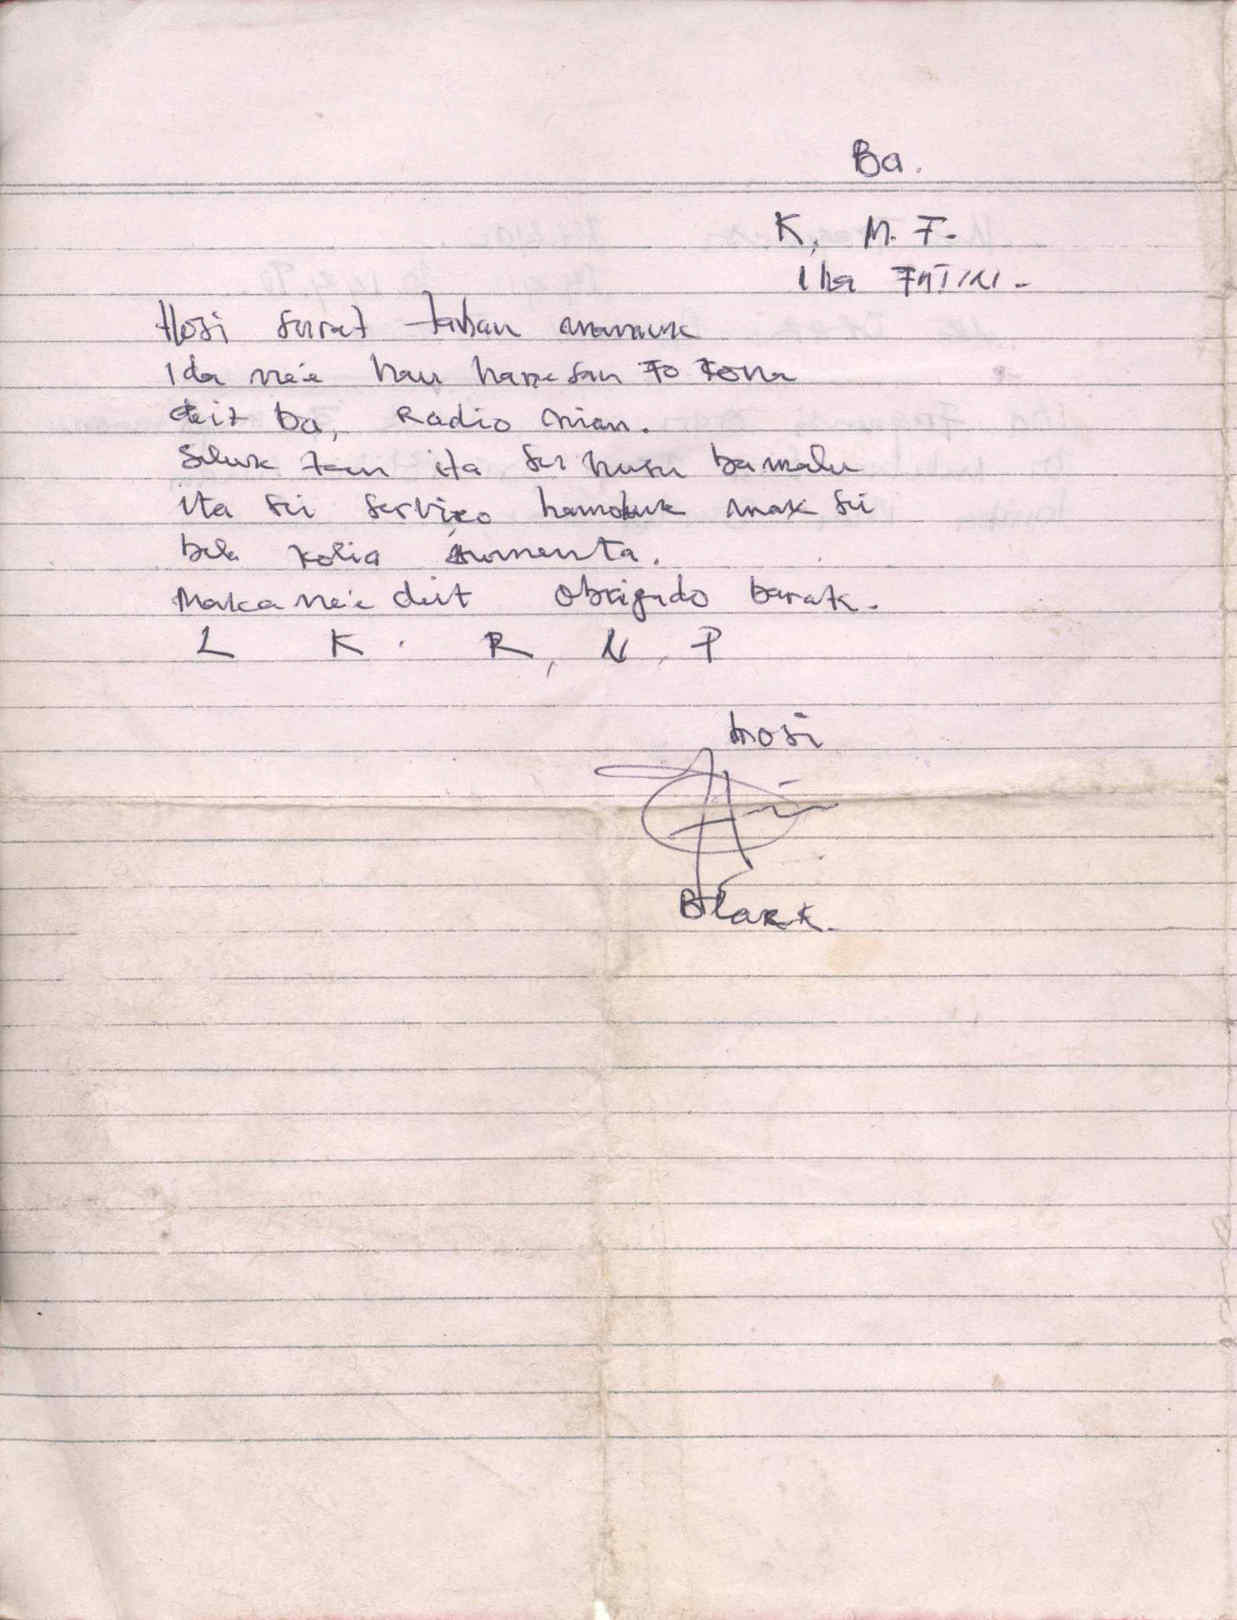 Ba.
K, M. F.
Iha FATIN -
Hosi surat tahan mamuk
Ida ne'e hau haruka san Fo Fona
deit ba, Radio nian.
Seluk tan ita sei husu ba malu
Ita sei serviço hamutuk mak sei
bele kolia aumenta.
Maka ne'e deit obrigado barak.
L K . R, N, P
hosi
Blakk.